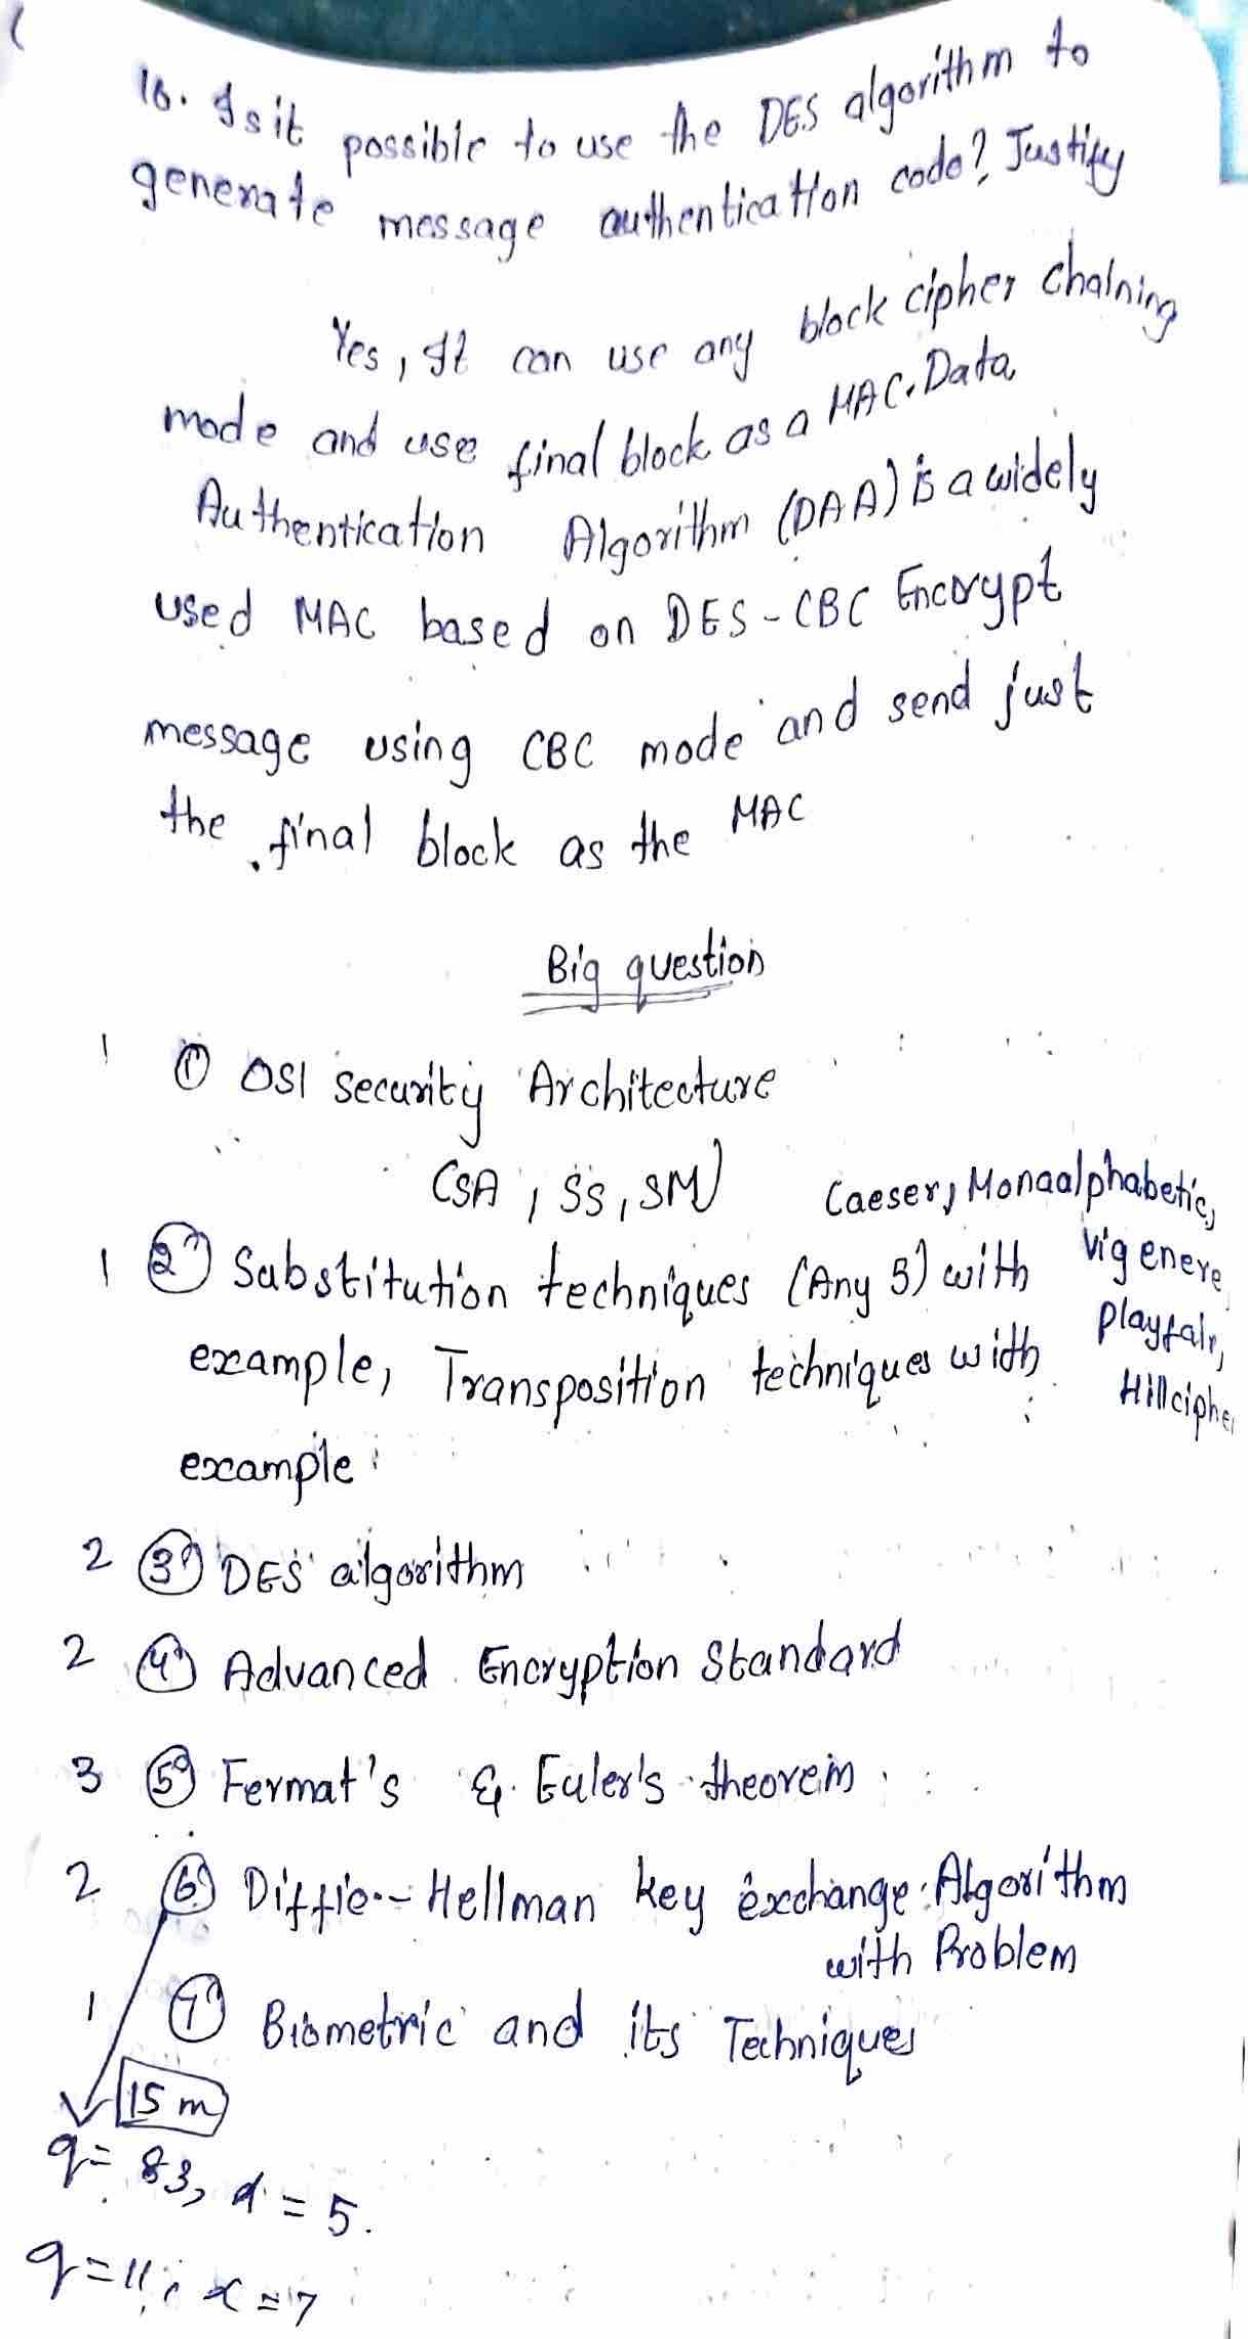 16. Is it possible to use the DES algorithm to
generate message authentication code? Justify
Yes, It can use any block cipher chaining
mode and use final block as a MAC. Data
Authentication Algorithm (DAA) is a widely
used MAC based on DES-CBC Encrypt
message using CBC mode and send just
the final block as the MAC
Big question
1 ① OSI security Architecture
(SA, SS, SM)
Caeser, Monoalphabetic,
1 ② Substitution techniques (Any 5) with
vigenere
example, Transposition techniques with
playfair,
Hill cipher
example
2 ③ DES algorithm
2 ④ Advanced Encryption Standard
3 ⑤ Fermat's & Euler's theorem
2 ⑥ Diffie-Hellman key exchange Algorithm
with Problem
1 ⑦ Biometric and its Techniques
15 m
q = 83, α = 5.
q = 11, α = 7